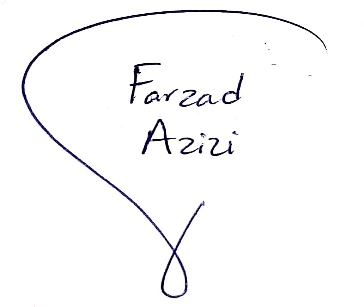 Farzad
Azizi